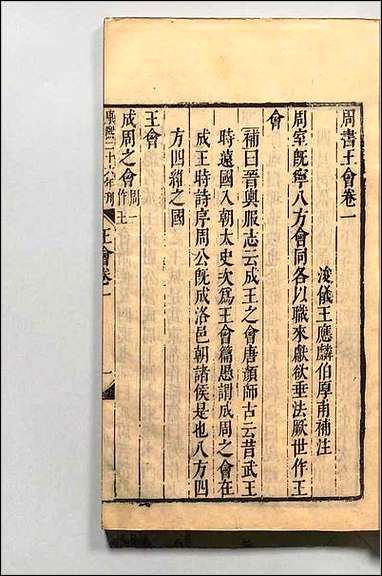 周書王會卷一
浚儀王應麟伯厚甫補注
周室旣寧八方會同各以職來獻欲垂法厥世作王
會
補曰晉輿服志云成王之會唐顔師古云昔武王
時遠國入朝太史次爲王會篇愚謂成周之會在
成王時詩序周公旣成洛邑朝諸侯是也八方四
方四維之國
王會
成周之會周一作王
康熙二十六年刊
王會卷一
一